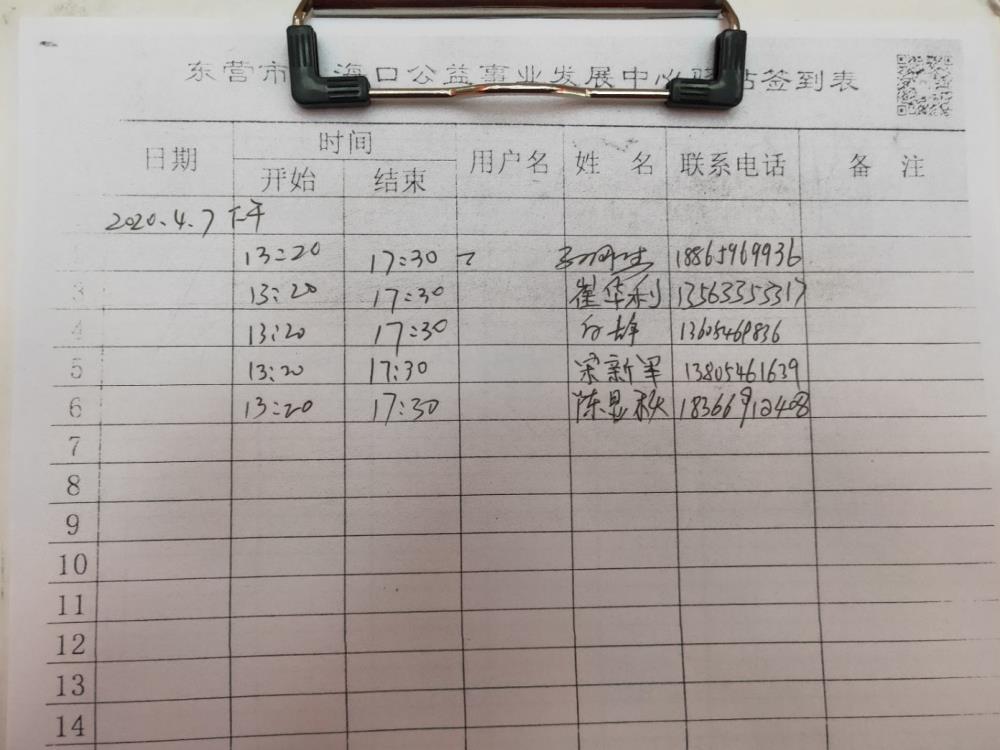 东营市 海口公益事业发展中心驿站签到表
日期 时间 用户名 姓 名 联系电话 备 注
开始 结束
2020.4.7 下午
13:20 17:30 18865969936
3 13:20 17:30 崔华利 13563355317
4 13:20 17:30 13605469836
5 13:20 17:30 宋新军 13805461639
6 13:20 17:30 陈显秋 18366912408
7
8
9
10
11
12
13
14